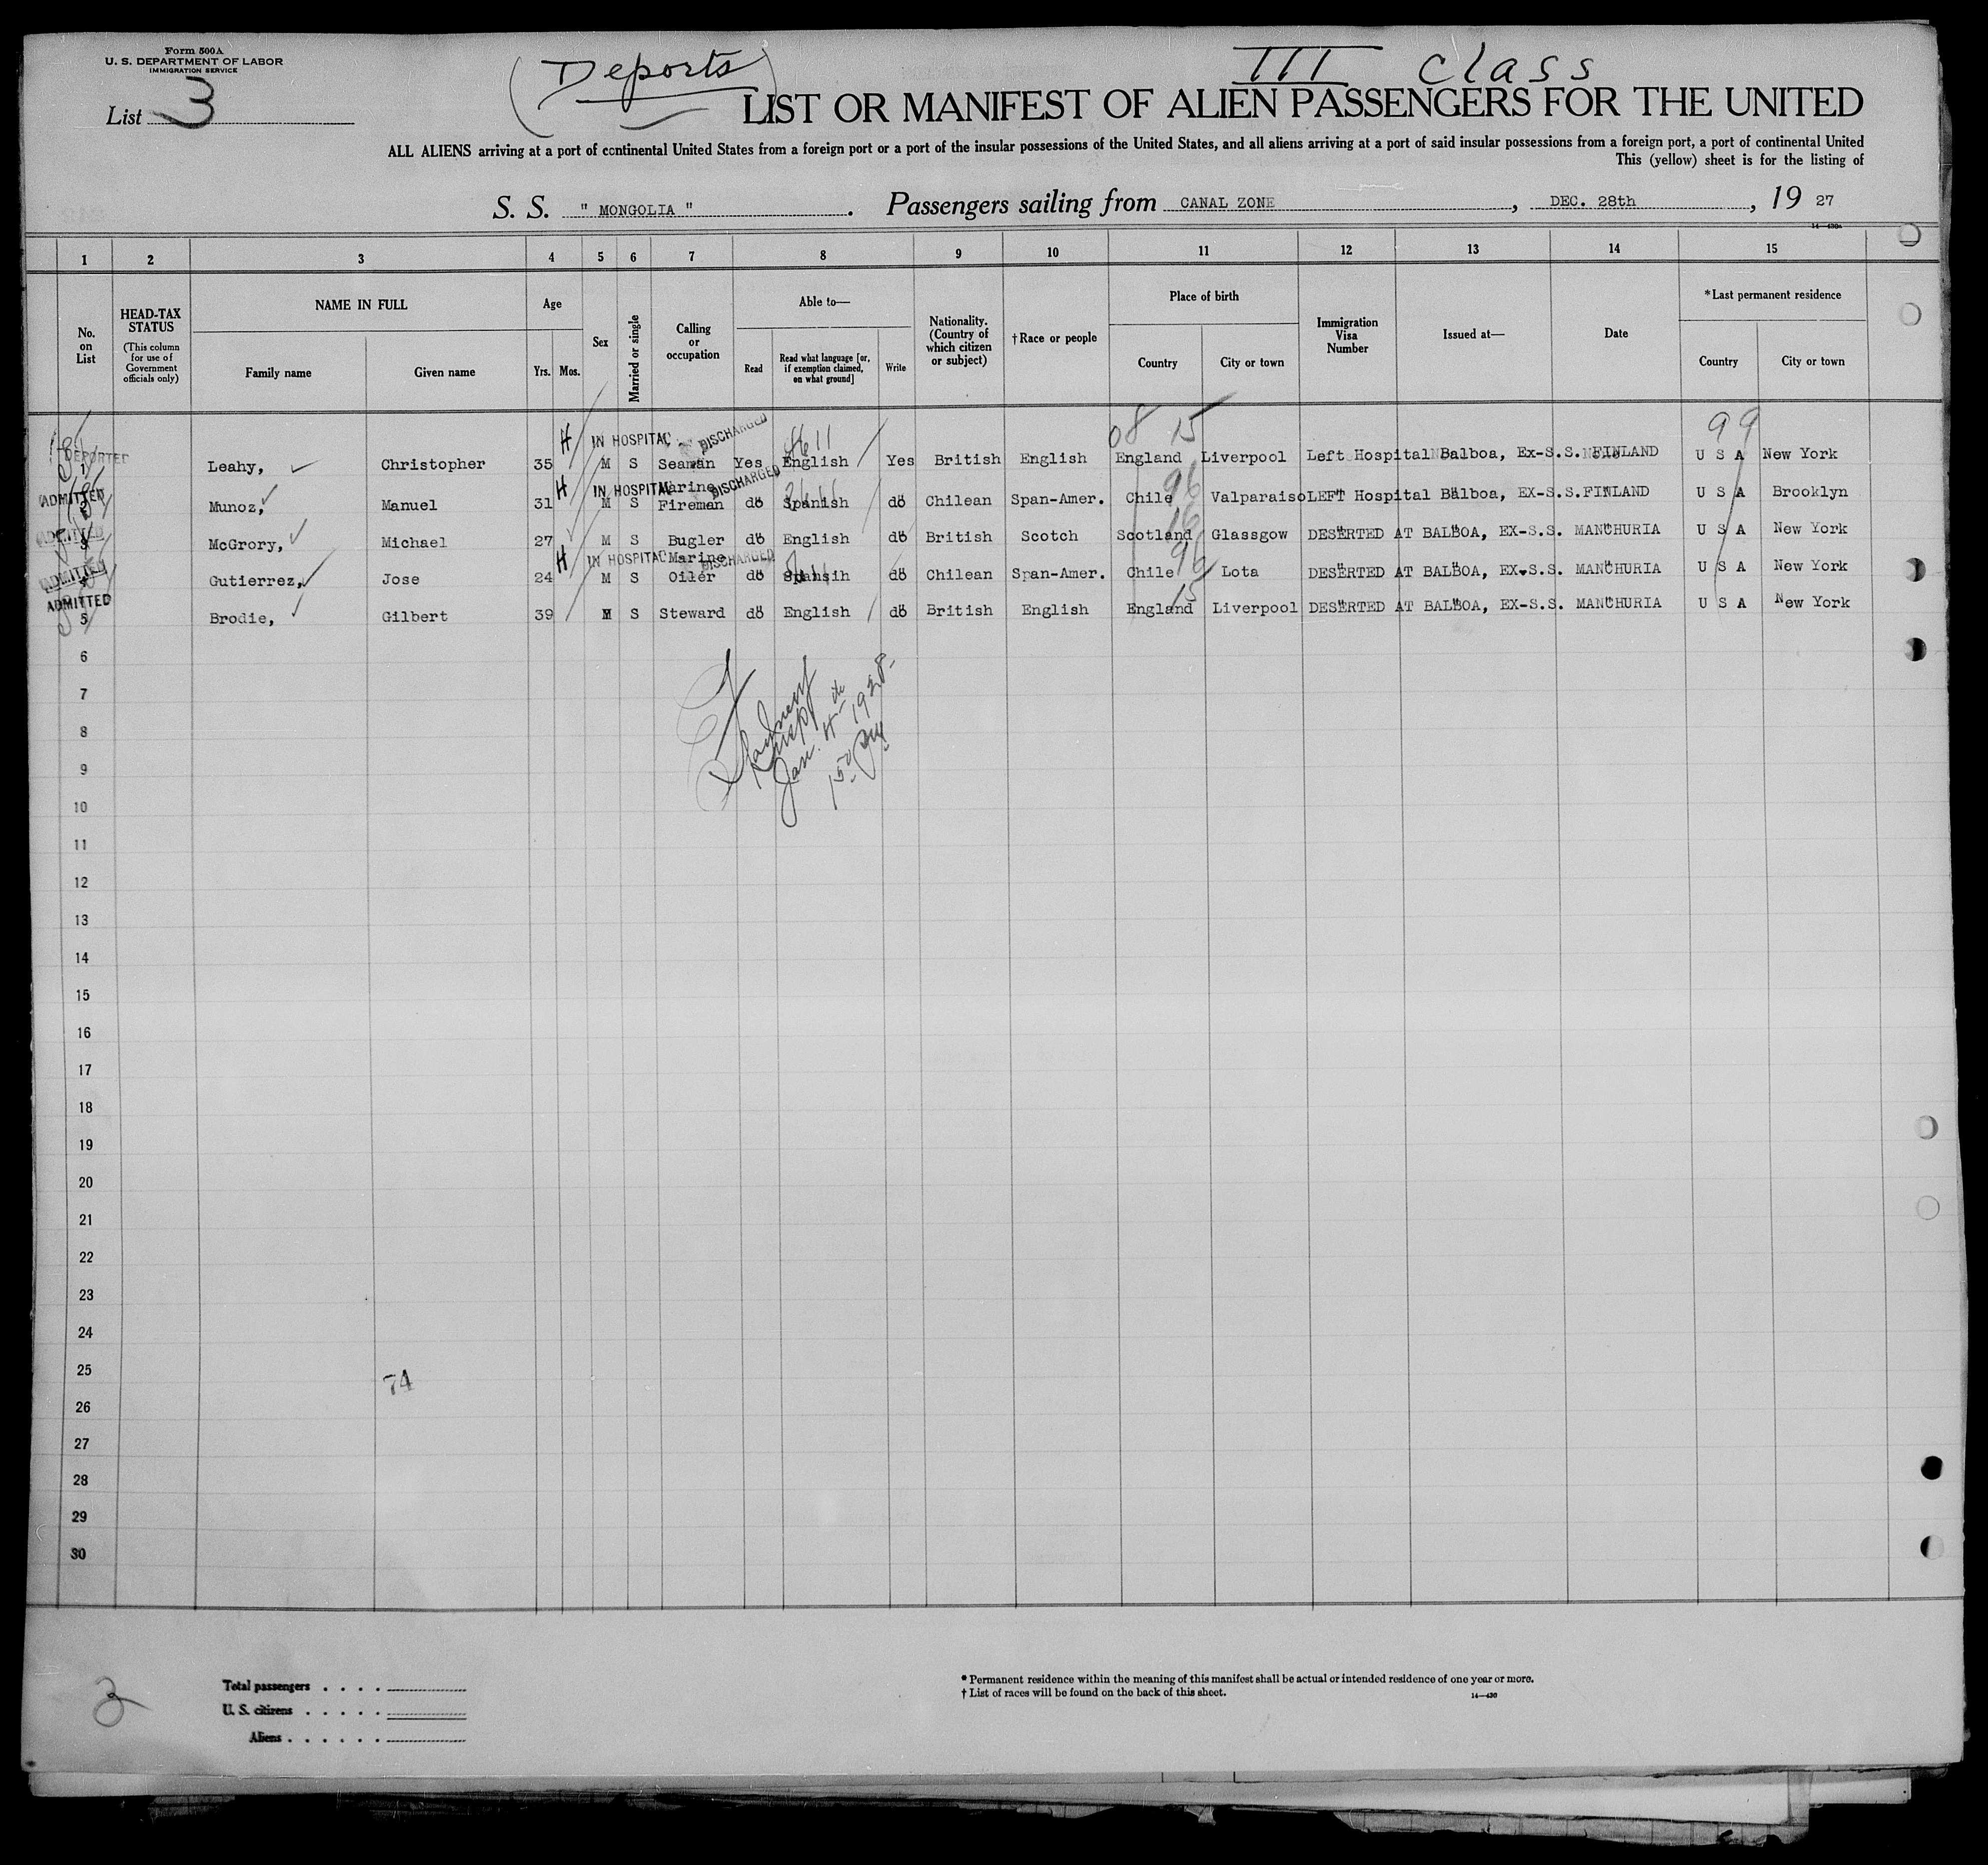 Form 500A
U. S. DEPARTMENT OF LABOR
IMMIGRATION SERVICE
List 3
(Deports)
III Class
LIST OR MANIFEST OF ALIEN PASSENGERS FOR THE UNITED
ALL ALIENS arriving at a port of continental United States from a foreign port or a port of the insular possessions of the United States, and all aliens arriving at a port of said insular possessions from a foreign port, a port of continental United
This (yellow) sheet is for the listing of
S. S. " MONGOLIA " . Passengers sailing from CANAL ZONE , DEC. 28th , 19 27
1 2 3 4 5 6 7 8 9 10 11 12 13 14 15
No. on List
HEAD-TAX STATUS
(This column for use of Government officials only)
NAME IN FULL
Family name Given name
Age
Yrs. Mos.
Sex
Married or single
Calling or occupation
Able to—
Read
Read what language [or, if exemption claimed, on what ground]
Write
Nationality. (Country of which citizen or subject)
†Race or people
Place of birth
Country City or town
Immigration Visa Number
Issued at—
Date
*Last permanent residence
Country City or town
08 15 99
DEPORTED H IN HOSPITAL DISCHARGED
1 Leahy, Christopher 35 M S Seaman Yes English Yes British English England Liverpool Left Hospital Balboa, Ex-S.S. FINLAND U S A New York
ADMITTED H IN HOSPITAL DISCHARGED 96
2 Munoz, Manuel 31 M S Marine Fireman do Spanish do Chilean Span-Amer. Chile Valparaiso LEFT Hospital Balboa, EX-S.S.FINLAND U S A Brooklyn
ADMITTED 16
3 McGrory, Michael 27 M S Bugler do English do British Scotch Scotland Glassgow DESERTED AT BALBOA, EX-S.S. MANCHURIA U S A New York
ADMITTED H IN HOSPITAL DISCHARGED 96
4 Gutierrez, Jose 24 M S Marine Oiler do Spansih do Chilean Span-Amer. Chile Lota DESERTED AT BALBOA, EX-S.S. MANCHURIA U S A New York
ADMITTED 15
5 Brodie, Gilbert 39 M S Steward do English do British English England Liverpool DESERTED AT BALBOA, EX-S.S. MANCHURIA U S A New York
6
7
8
Insp
Jan. 4th 1928
9
10
11
12
13
14
15
16
17
18
19
20
21
22
23
24
25
74
26
27
28
29
30
Total passengers . . . .
U. S. citizens . . . . .
Aliens . . . . . .
* Permanent residence within the meaning of this manifest shall be actual or intended residence of one year or more.
† List of races will be found on the back of this sheet.
14—430